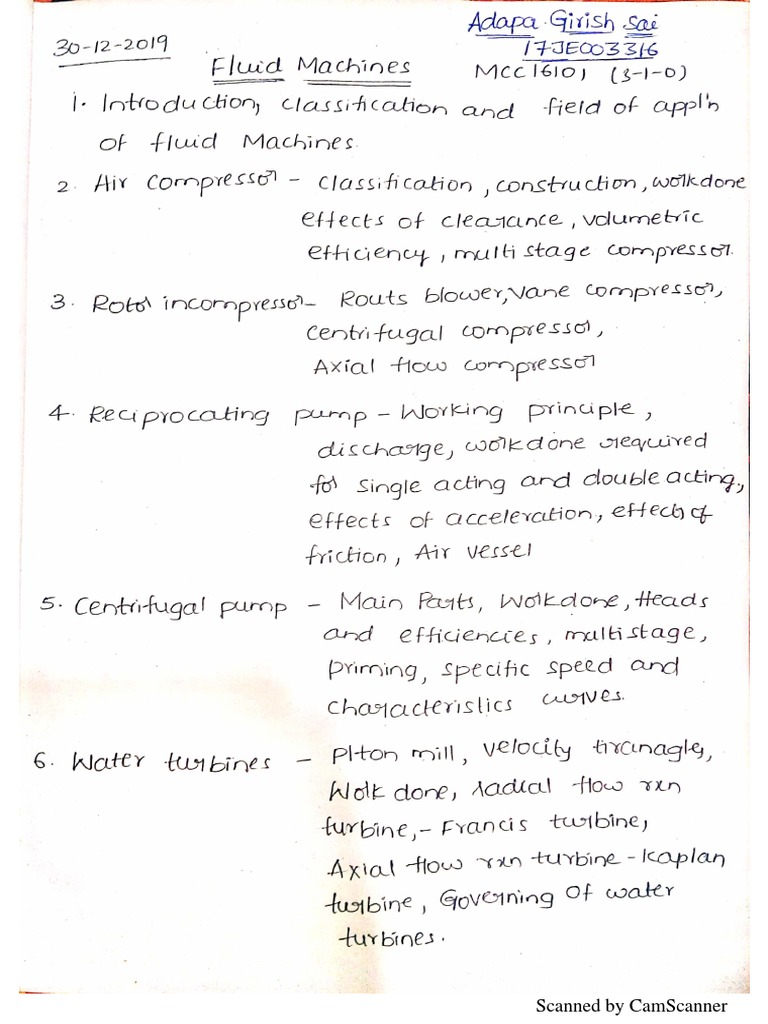 Adapa Girish Sai
30-12-2019
17JE003316
Fluid Machines
MCC16101 (3-1-0)
1. Introduction, classification and field of appl'n
of fluid Machines.
2. Air compressor - classification, construction, workdone
effects of clearance, volumetric
efficiency, multi stage compressor.
3. Rotor incompressor - Routs blower, Vane compressor,
Centrifugal compressor,
Axial flow compressor
4. Reciprocating pump - Working principle,
discharge, workdone required
for single acting and double acting,
effects of acceleration, effects of
friction, Air vessel
5. Centrifugal pump - Main Parts, Workdone, Heads
and efficiencies, multistage,
priming, specific speed and
characteristics curves.
6. Water turbines - Plton mill, velocity tiranagles,
Work done, radial flow rxn
turbine, - Francis turbine,
Axial flow rxn turbine - Kaplan
turbine, Governing Of water
turbines.
Scanned by CamScanner